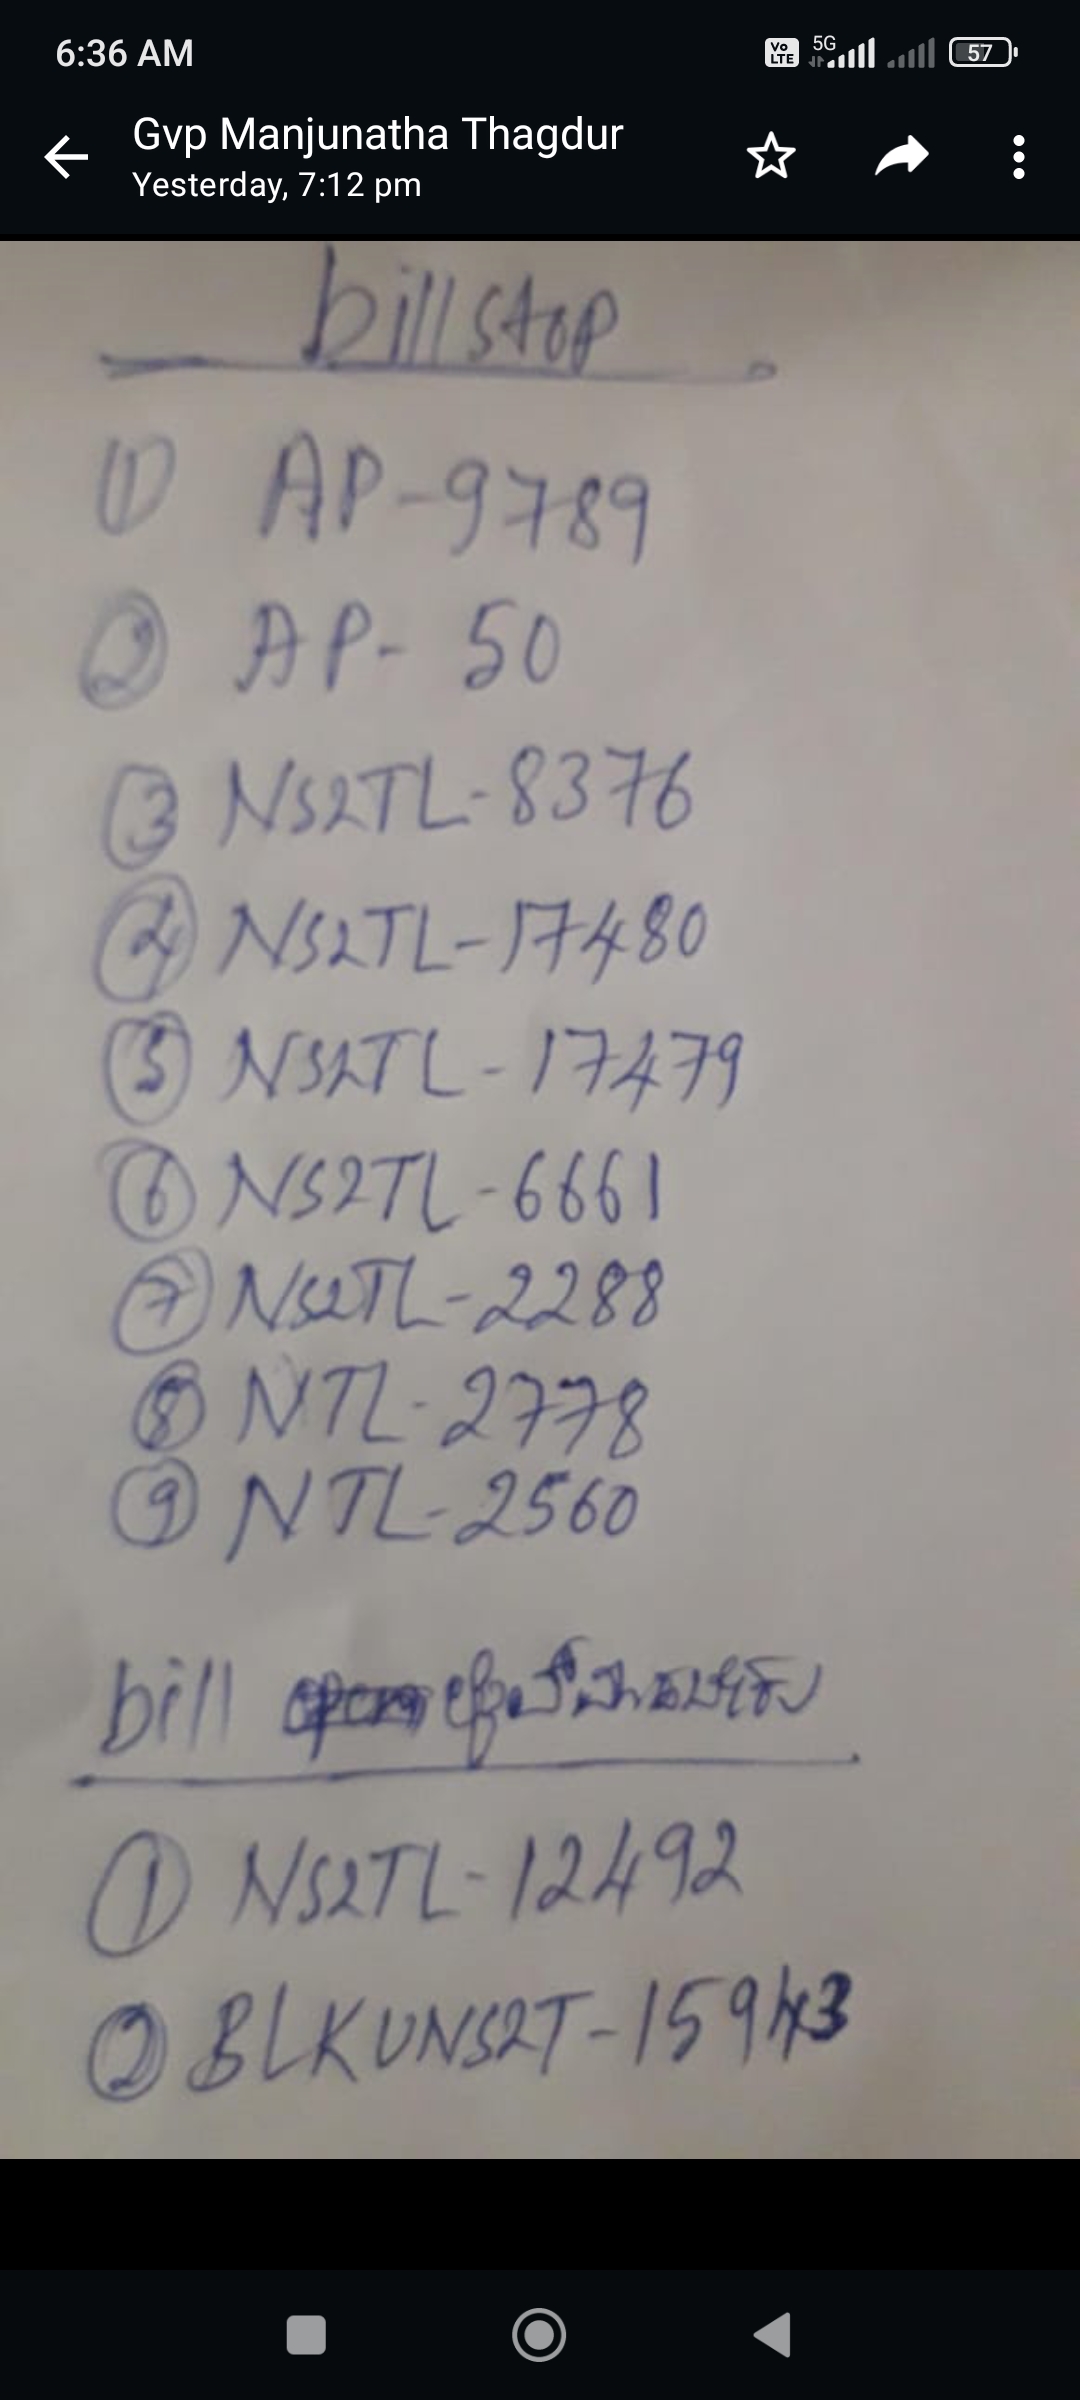 6:36 AM
Vo LTE 5G 57
Gvp Manjunatha Thagdur
Yesterday, 7:12 pm
bill stop
① AP-9789
② AP- 50
③ NS2TL-8376
④ NS2TL-17480
⑤ NS2TL-17479
⑥ NS2TL-6661
⑦ NS2TL-2288
⑧ NTL-2778
⑨ NTL-2560
bill
① NS2TL-12492
② BLKUNS2T-15943